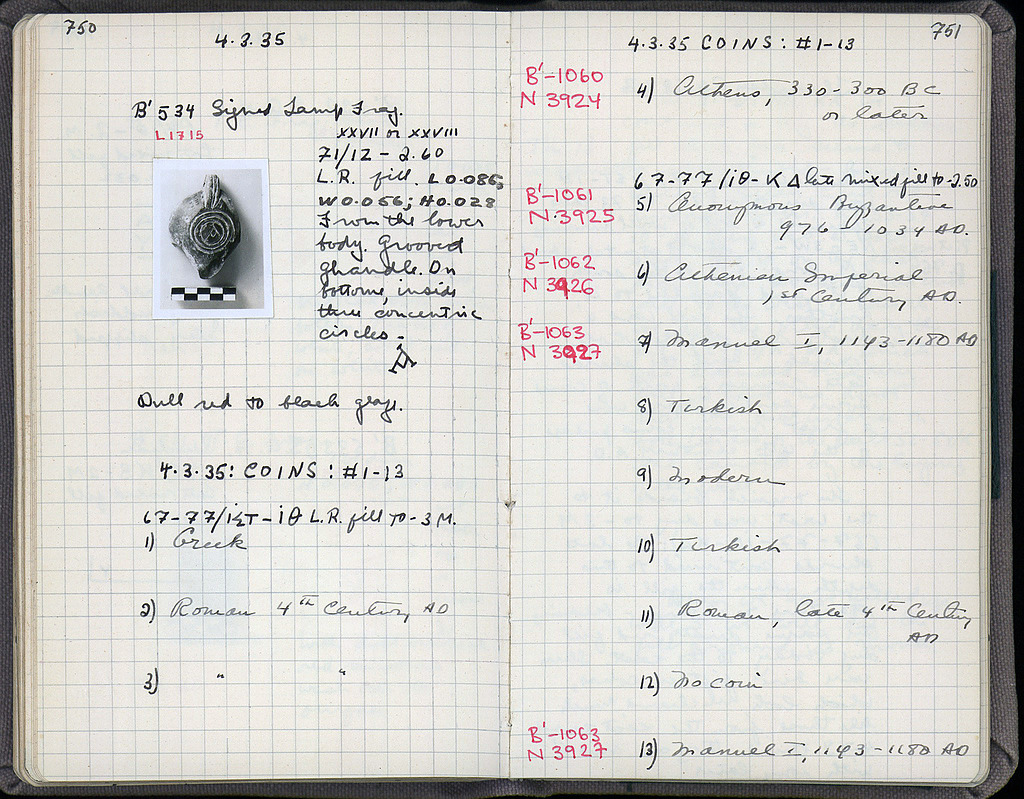 750
4.3.35
B'534 Signed Lamp Frag.
L1715
XXVII or XXVIII
71/ΙΖ - 2.60
L.R. fill. L 0.086;
W 0.056; H 0.028
From the lower
body. Grooved
handle. On
bottom, inside
three concentric
circles -
Dull red to black glaze.
4.3.35: COINS: #1-13
67-77/ - ίθ L.R. fill to -3M.
1) Greek
2) Roman 4th Century AD
3) " "
751
4.3.35 COINS: #1-13
B'-1060
N 3924
4) Athens, 330-300 BC
or later
67-77/ίθ-ΚΔ late mixed fill to -2.50
B'-1061
N 3925
5) Anonymous Byzantine
976 - 1034 AD.
B'-1062
N 3926
6) Athenian Imperial
1st Century AD.
B'-1063
N 3927
7) Manuel I, 1143-1180 AD
8) Turkish
9) Modern
10) Turkish
11) Roman, late 4th Century
AD
12) No coin
B'-1063
N 3927
13) Manuel I, 1143-1180 AD